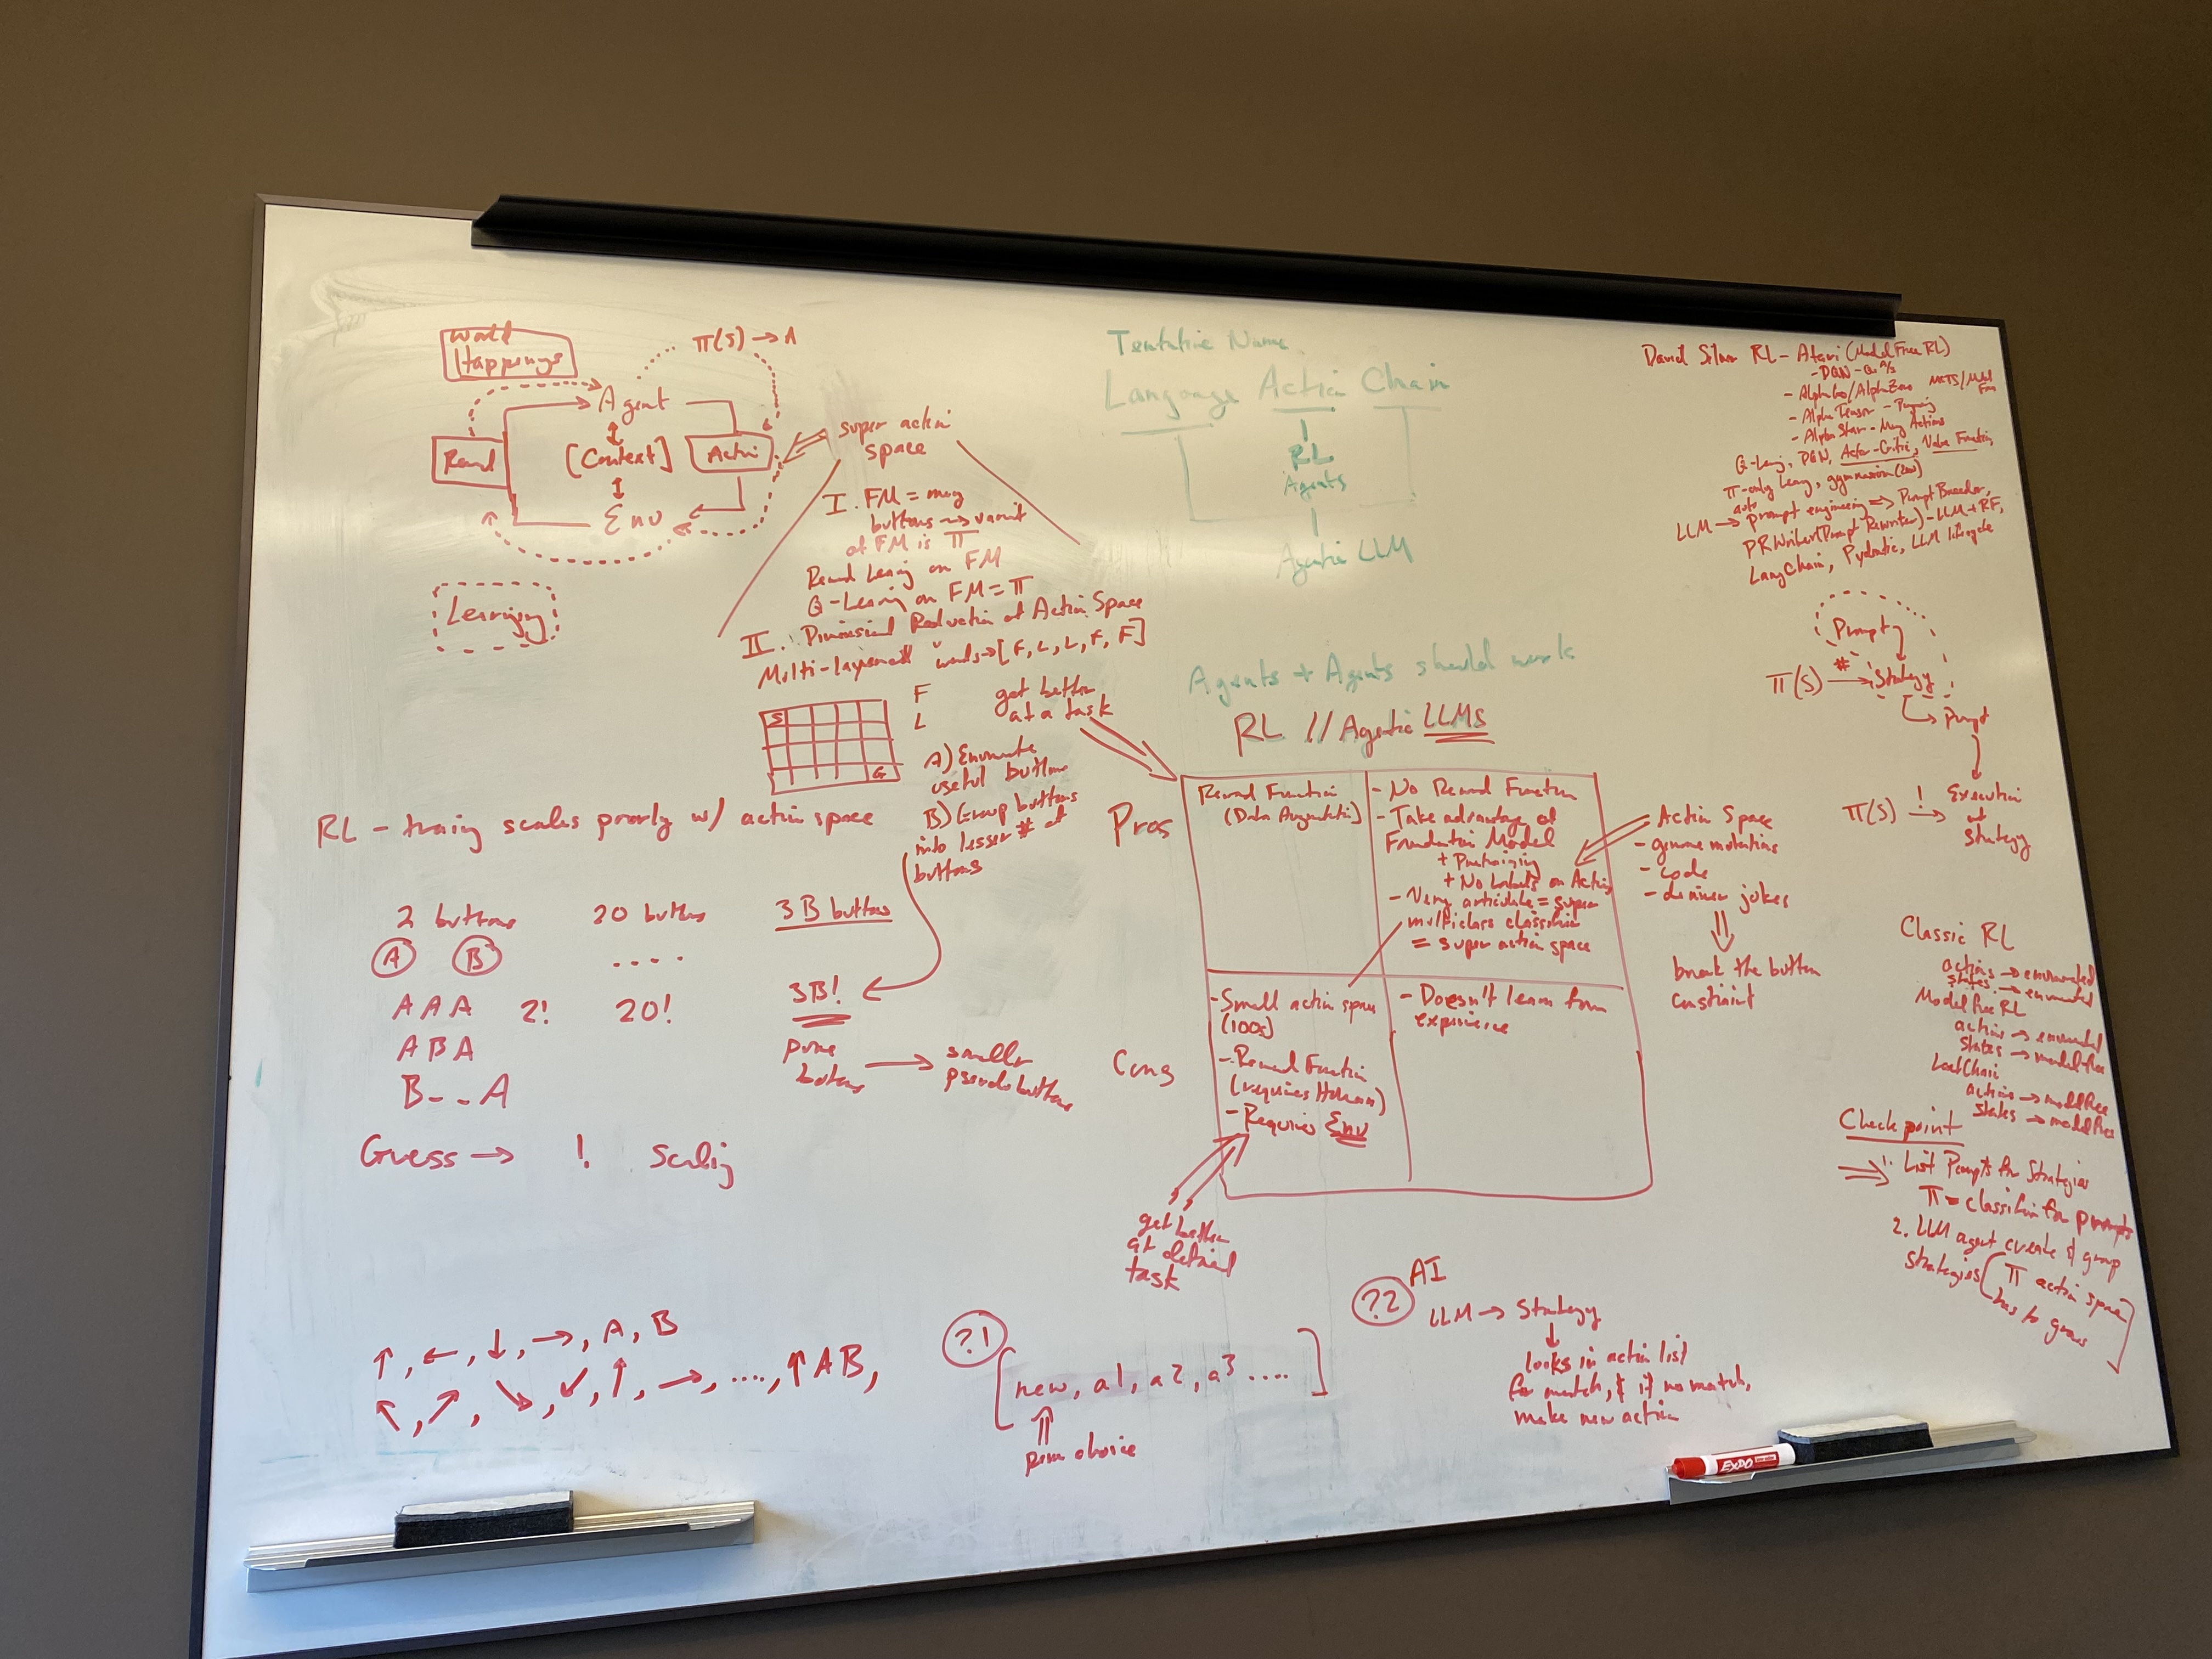 World
Happenings
π(S) → A
Agent
Reward
[Context]
Action
Env
Learning
super action
space
I. FM = many
buttons → variant
of FM is π
Reward Learning on FM
Q-Learning on FM = π
II. Dimensional Reduction of Action Space
Multi-layered words → [F, L, L, F, F]
S
G
F
L
A) Enumerate
useful buttons
B) Group buttons
into lesser # of
buttons
RL - training scales poorly w/ action space
2 buttons 20 buttons 3B buttons
A B ....
AAA 2! 20! 3B!
ABA
B--A
prune
buttons → smaller
pseudo buttons
Guess → ! Scaling
↑, ←, ↓, →, A, B
↖, ↗, ↘, ↙, ↑, →, ...., ↑AB,
Tentative Name
Language Action Chain
RL
Agents
Agentic LLM
Agents + Agents should work
RL // Agentic LLMs
get better
at a task
Pros
Reward Function
(Data Augmentation)
- No Reward Function
- Take advantage of
Foundation Model
+ Pretraining
+ No Labels on Action
- Very articulate = super
multiclass classifier
= super action space
Cons
- Small action space
(100s)
- Reward Function
(requires Human)
- Requires Env
- Doesn't learn from
experience
get better
at defined
task
Action Space
- genome mutations
- code
- jokes
break the button
constraint
?1
[new, a1, a2, a3 ....]
choice
?2 AI
LLM → Strategy
looks in action list
for match, & if no match,
make new action
David Silver RL - Atari (Model Free RL)
- DQN -
- AlphaGo/AlphaZero MCTS/Model
Free
- Alpha Tensor -
- AlphaStar - Many Actions
Q-Learning, DQN, Actor-Critic, Value Function,
π-only learning, gymnasium (env)
auto
LLM → prompt engineering → PromptBreeder,
PRWriter (Prompt Rewriter) - LLM + RF,
LangChain, Pydantic, LLM lifecycle
Prompt
#
π(S) → Strategy
Prompt
!
π(S) → Execution
of
Strategy
Classic RL
actions → enumerated
states → enumerated
Model Free RL
actions → enumerated
states → model free
actions → model free
states → model free
Checkpoint
1. List Prompts for Strategies
π = classifier for prompts
2. LLM agent create & group
strategies [π action space
has to grow]
EXPO